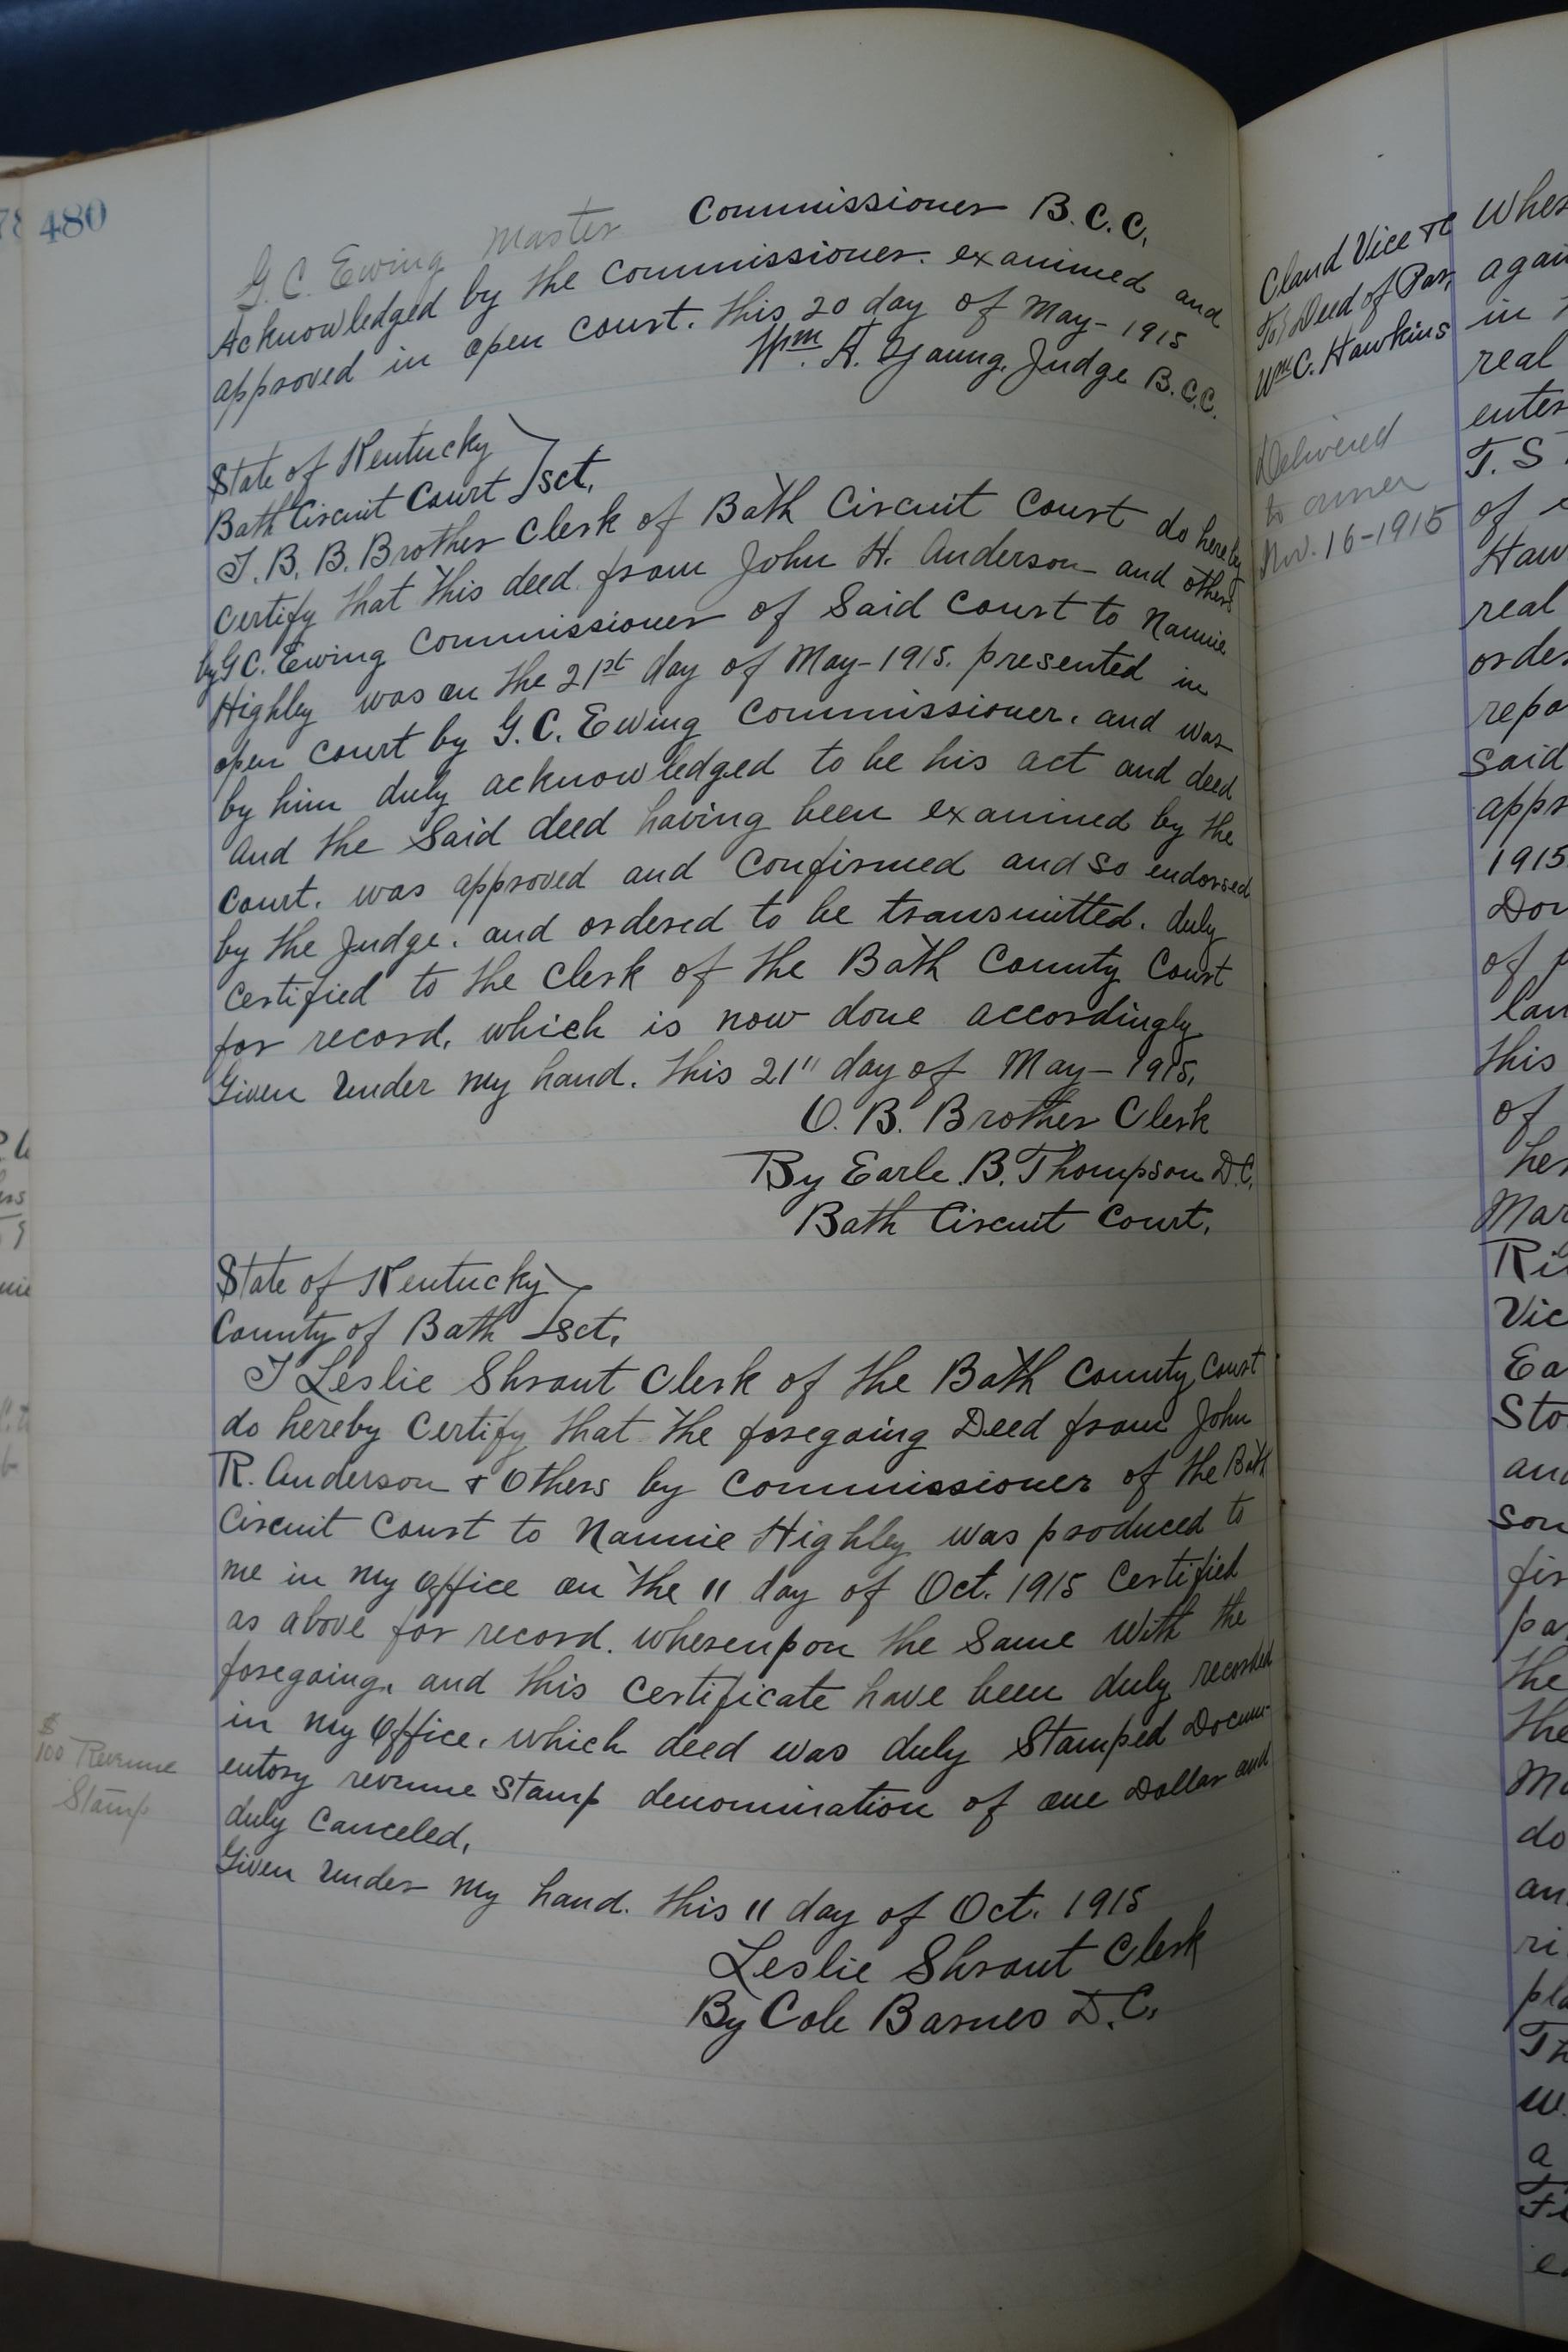 480
G. C. Ewing Master Commissioner B.C.C.
Acknowledged by the Commissioner. examined and
approved in open court. This 20 day of May - 1915
Wm. A. Young, Judge B.C.C.
State of Kentucky
Bath Circuit Court } sct.
I. B. B. Brother Clerk of Bath Circuit Court do hereby
certify that this deed from John H. Anderson and others
by G C. Ewing Commissioner of Said Court to Nannie
Highley was on the 21st day of May - 1915. presented in
open court by G. C. Ewing Commissioner. and was
by him duly acknowledged to be his act and deed
And the Said deed having been examined by the
Court. was approved and Confirmed and so endorsed
by the Judge. and ordered to be transmitted. duly
Certified to the Clerk of the Bath County Court
for record. which is now done accordingly
Given under my hand. this 21" day of May - 1915.
O. B. Brother Clerk
By Earle B. Thompson D.C.
Bath Circuit Court.
State of Kentucky
County of Bath } sct.
I Leslie Shrout Clerk of the Bath County Court
do hereby Certify that the foregoing Deed from John
R. Anderson & Others by Commissioner of the Bath
Circuit Court to Nannie Highley was produced to
me in my office on the 11 day of Oct. 1915 Certified
as above for record. whereupon the Same With the
foregoing, and this Certificate have been duly recorded
in my Office. which deed was duly Stamped Docum-
entory revenue Stamp denomination of one Dollar and
duly Canceled.
Given under my hand. this 11 day of Oct. 1915
Leslie Shrout Clerk
By Cole Barnes D.C.
$
100 Revenue
Stamp
Claud Vice &c
To } Deed of Par.
Wm C. Hawkins
Delivered
to owner
Nov. 16-1915
agai
in
real
enter
T. S
of
Haw
real
order
repo
Said
appr
1915
of
lan
this
of
her
Mar
Vic
Ea
Sto
and
son
fir
pa
the
the
do
an
ri
pla
Th
W.
a